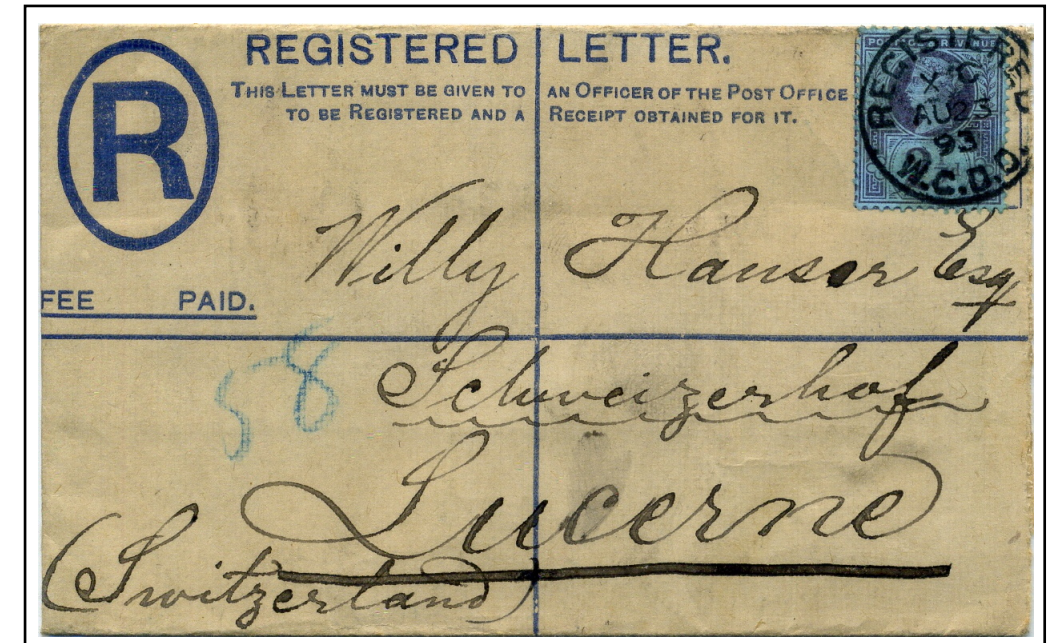 R
REGISTERED LETTER.
THIS LETTER MUST BE GIVEN TO AN OFFICER OF THE POST OFFICE
TO BE REGISTERED AND A RECEIPT OBTAINED FOR IT.
POSTAGE REVENUE
REGISTERED
X C
AU 23
93
W.C.D.O.
Willy Hauser Esq
FEE PAID.
58
Schweizerhof
Lucerne
(Switzerland)